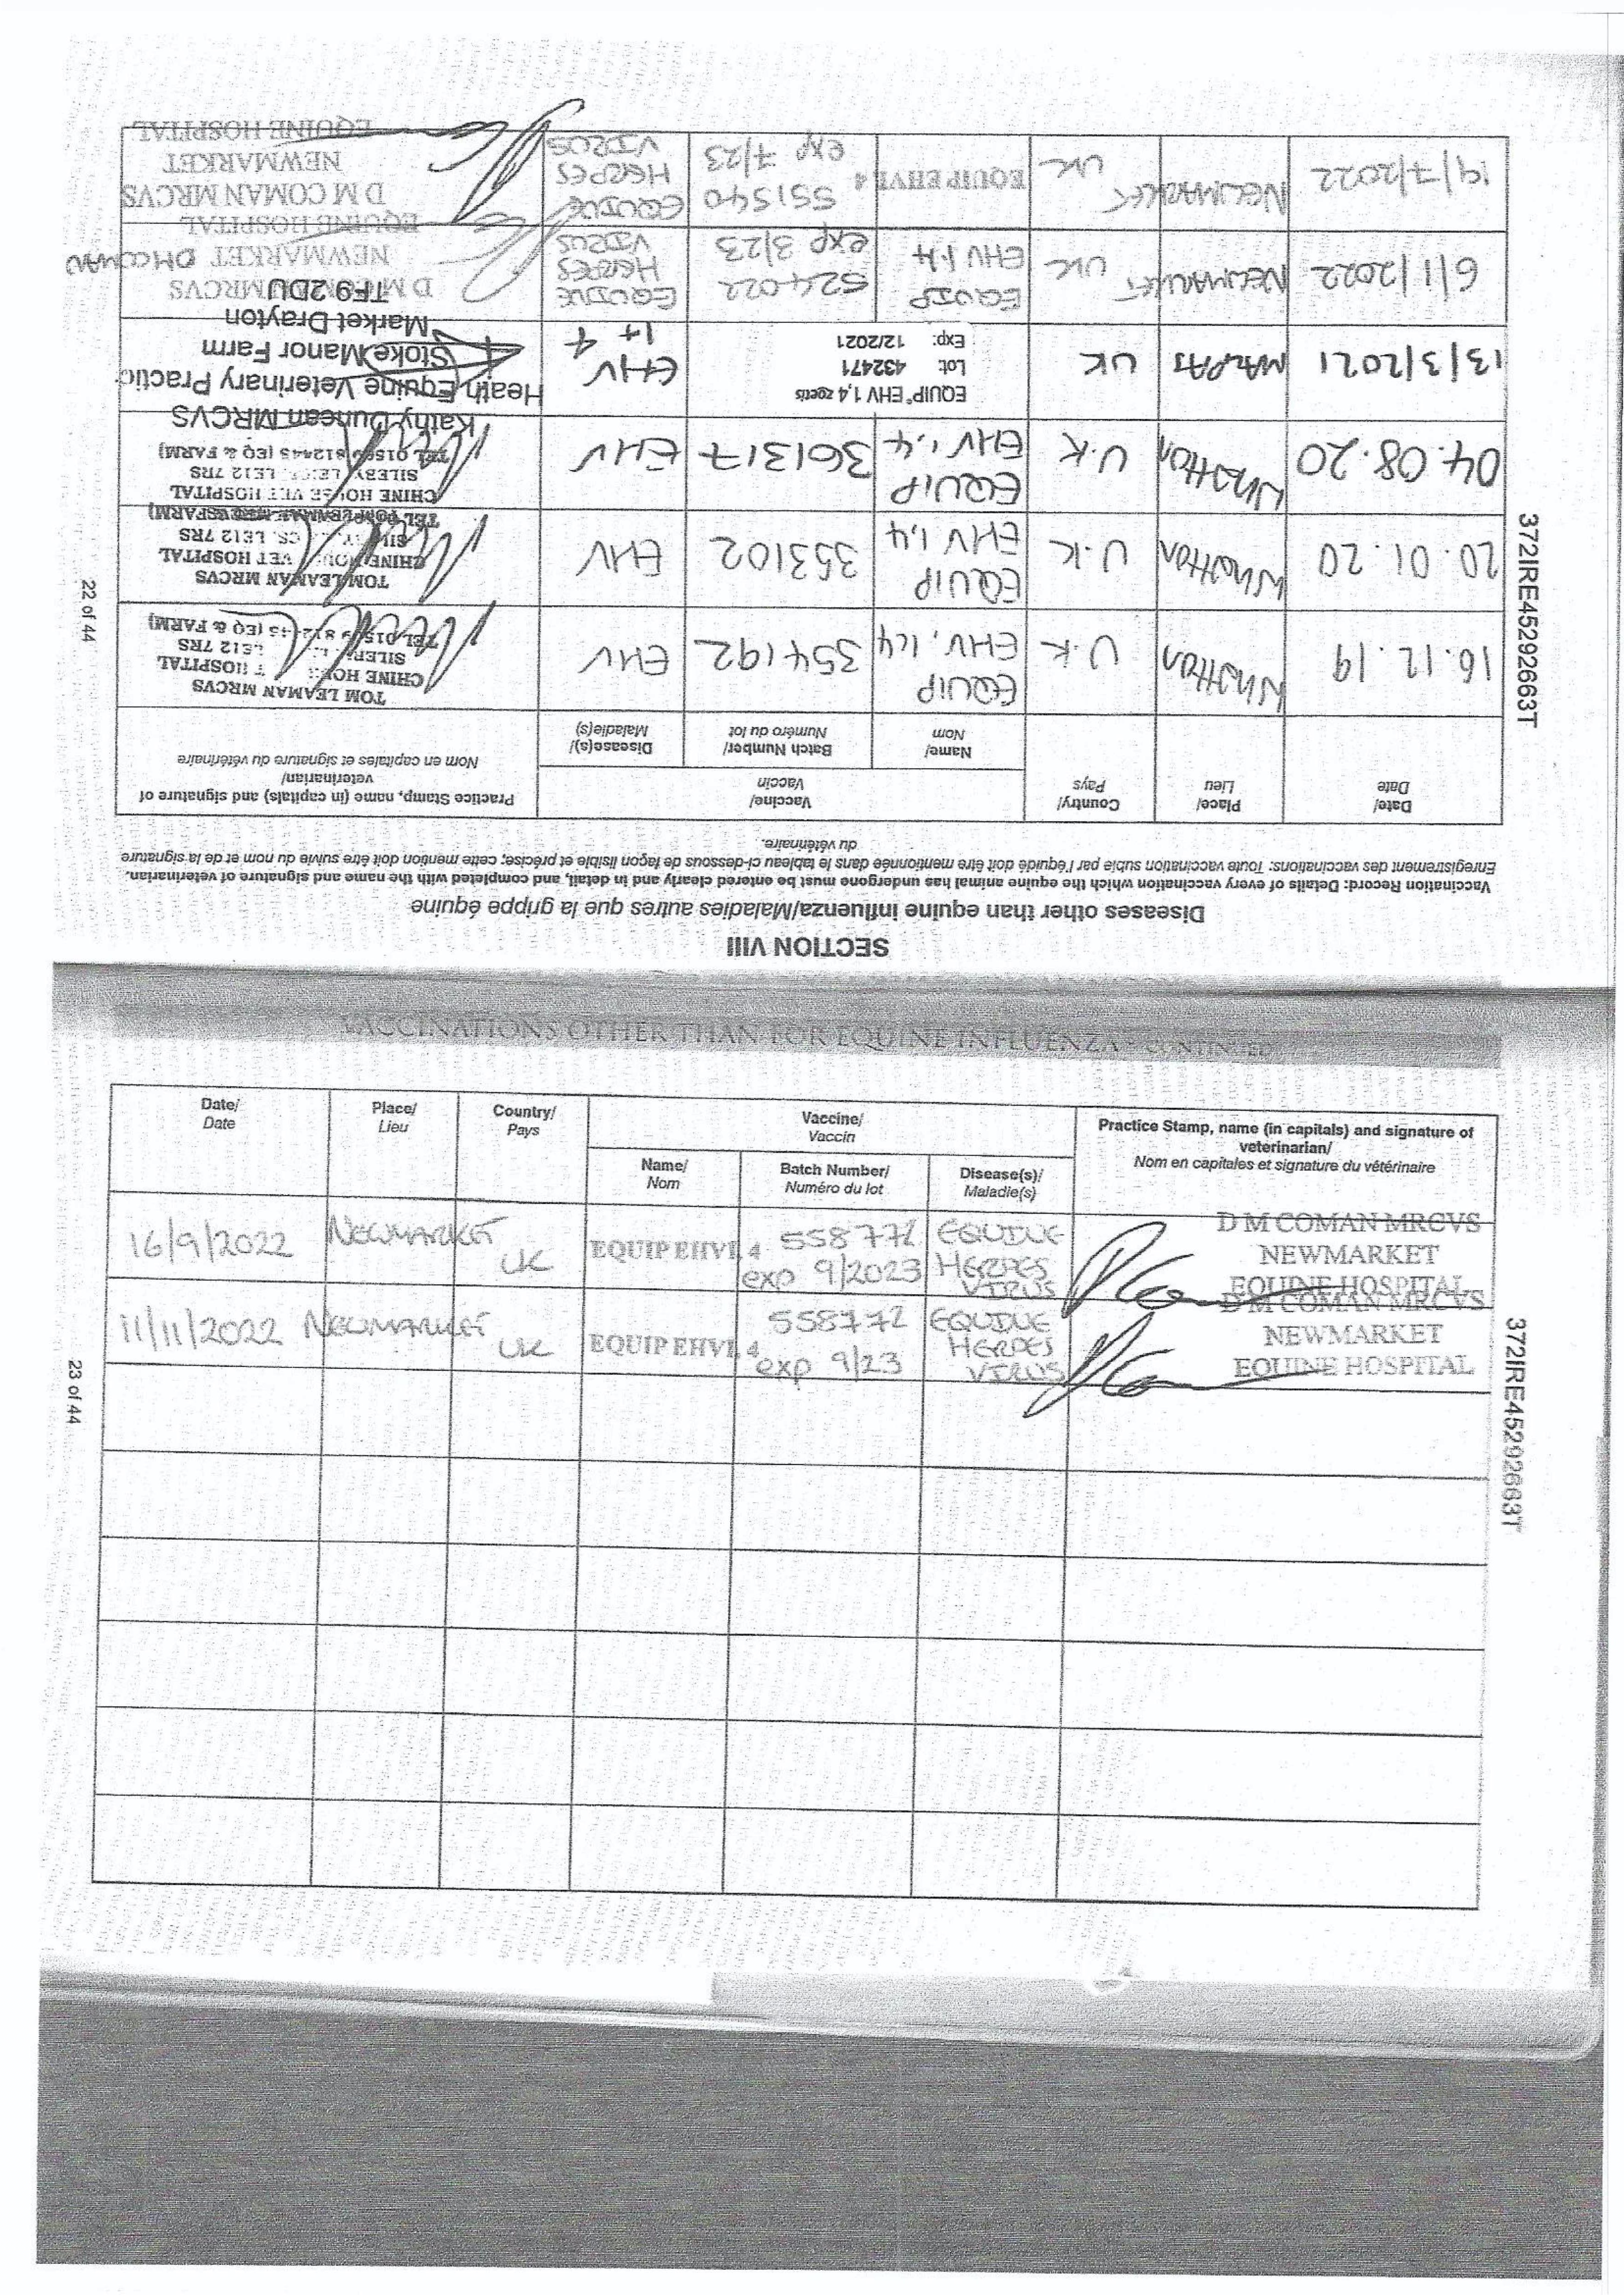 SECTION VIII
Diseases other than equine influenza/Maladies autres que la grippe équine
Vaccination Record: Details of every vaccination which the equine animal has undergone must be entered clearly and in detail, and completed with the name and signature of veterinarian.
Enregistrement des vaccinations: Toute vaccination subie par l'équidé doit être mentionnée dans le tableau ci-dessous de façon lisible et précise; cette mention doit être suivie du nom et de la signature
du vétérinaire.
Date/ Date
Place/ Lieu
Country/ Pays
Vaccine/ Vaccin
Practice Stamp, name (in capitals) and signature of
veterinarian/
Nom en capitales et signature du vétérinaire
Name/ Nom
Batch Number/ Numéro du lot
Disease(s)/ Maladie(s)
16.12.19 Whatton U.K EQUIP EHV, 1,4 354192 EHV
TOM LEAMAN MRCVS
CHINE HOUSE VET HOSPITAL
SILEBY LE12 7RS
(EQ & FARM)
20.01.20 Whatton U.K EQUIP EHV 1,4 353102 EHV
TOM LEAMAN MRCVS
CHINE HOUSE VET HOSPITAL
LE12 7RS
04.08.20 Whatton U.K EQUIP EHV 1,4 361317 EHV
CHINE HOUSE VET HOSPITAL
SILEBY LE12 7RS
TEL 01509 812445 (EQ & FARM)
13/3/2021 UK
EQUIP® EHV 1,4 zoetis
Lot: 432471
Exp: 12/2021
EHV 1+4
Kathy Duncan MRCVS
Heath Equine Veterinary Practic
Stoke Manor Farm
Market Drayton
TF9 2DU
6/1/2022 NEWMARKET UK EQUIP EHV 1.4 524022 exp 3/23 EQUINE HERPES VIRUS
D M COMAN MRCVS
NEWMARKET DM COMAN
EQUINE HOSPITAL
19/7/2022 NEWMARKET UK EQUIP EHV1, 4 551540 exp 7/23 EQUINE HERPES VIRUS
D M COMAN MRCVS
NEWMARKET
EQUINE HOSPITAL
22 of 44
372IRE45292663T
VACCINATIONS OTHER THAN FOR EQUINE INFLUENZA - CONTINUED
Date/ Date
Place/ Lieu
Country/ Pays
Vaccine/ Vaccin
Practice Stamp, name (in capitals) and signature of
veterinarian/
Nom en capitales et signature du vétérinaire
Name/ Nom
Batch Number/ Numéro du lot
Disease(s)/ Maladie(s)
16/9/2022 NEWMARKET UK EQUIP EHV1, 4 558772 exp 9/2023 EQUINE HERPES VIRUS
D M COMAN MRCVS
NEWMARKET
EQUINE HOSPITAL
11/11/2022 NEWMARKET UK EQUIP EHV1, 4 558772 exp 9/23 EQUINE HERPES VIRUS
D M COMAN MRCVS
NEWMARKET
EQUINE HOSPITAL
23 of 44
372IRE45292663T